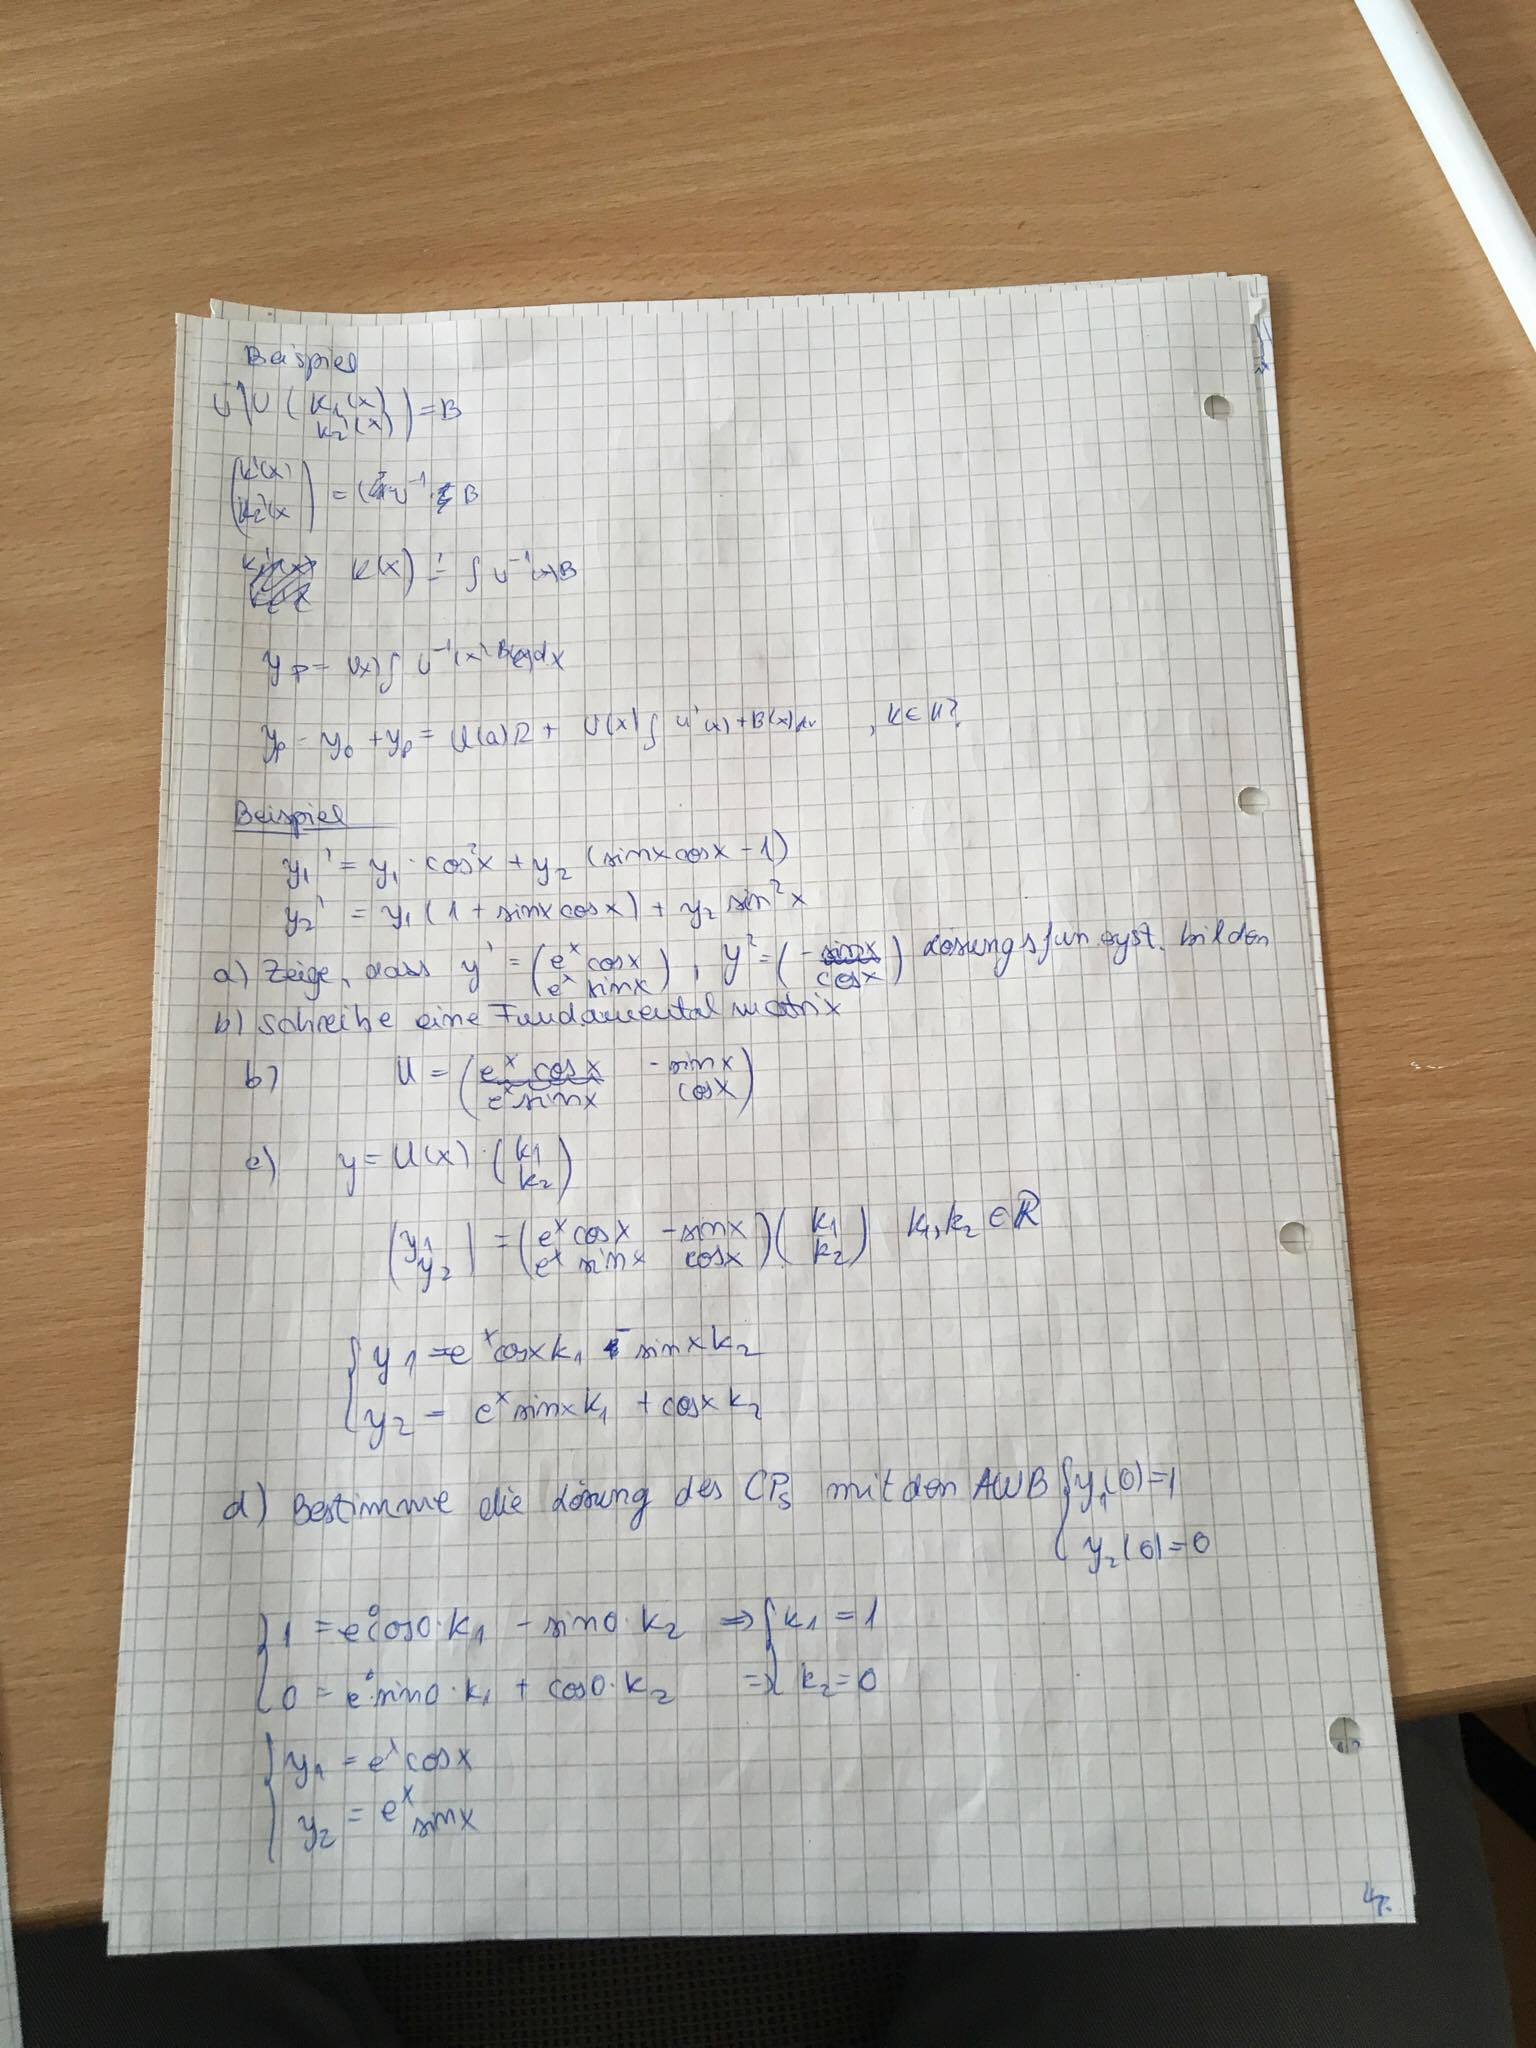 Beispiel
U (k1'(x)
k2'(x)) = B
(k1'(x)
k2'(x) = U^-1 · B
k(x) = ∫ U^-1(x) B
yp = U(x) ∫ U^-1(x) B(x) dx
yp = y0 + yp = U(x) + U(x) ∫ U^-1(x) + B(x) dx , k ∈
Beispiel
y1' = y1 · cos²x + y2 (sinx cosx - 1)
y2' = y1 (1 + sinx cosx) + y2 sin²x
a) Zeige, dass y^1 = (e^x cosx
e^x sinx) , y^2 = (-sinx
cosx) Lösungsfun.syst. bilden
b) Schreibe eine Fundamentalmatrix
b) U = (e^x cosx -sinx
e^x sinx cosx)
c) y = U(x) · (k1
k2)
(y1
y2) = (e^x cosx -sinx
e^x sinx cosx) (k1
k2) k1, k2 ∈ ℝ
{ y1 = e^x cosx k1 - sinx k2
y2 = e^x sinx k1 + cosx k2
d) Bestimme die Lösung des CPs mit den AWB { y1(0) = 1
y2(0) = 0
{ 1 = e^0 cos0 · k1 - sin0 · k2 ⇒ { k1 = 1
0 = e^0 · sin0 · k1 + cos0 · k2 ⇒ k2 = 0
{ y1 = e^x cosx
y2 = e^x sinx